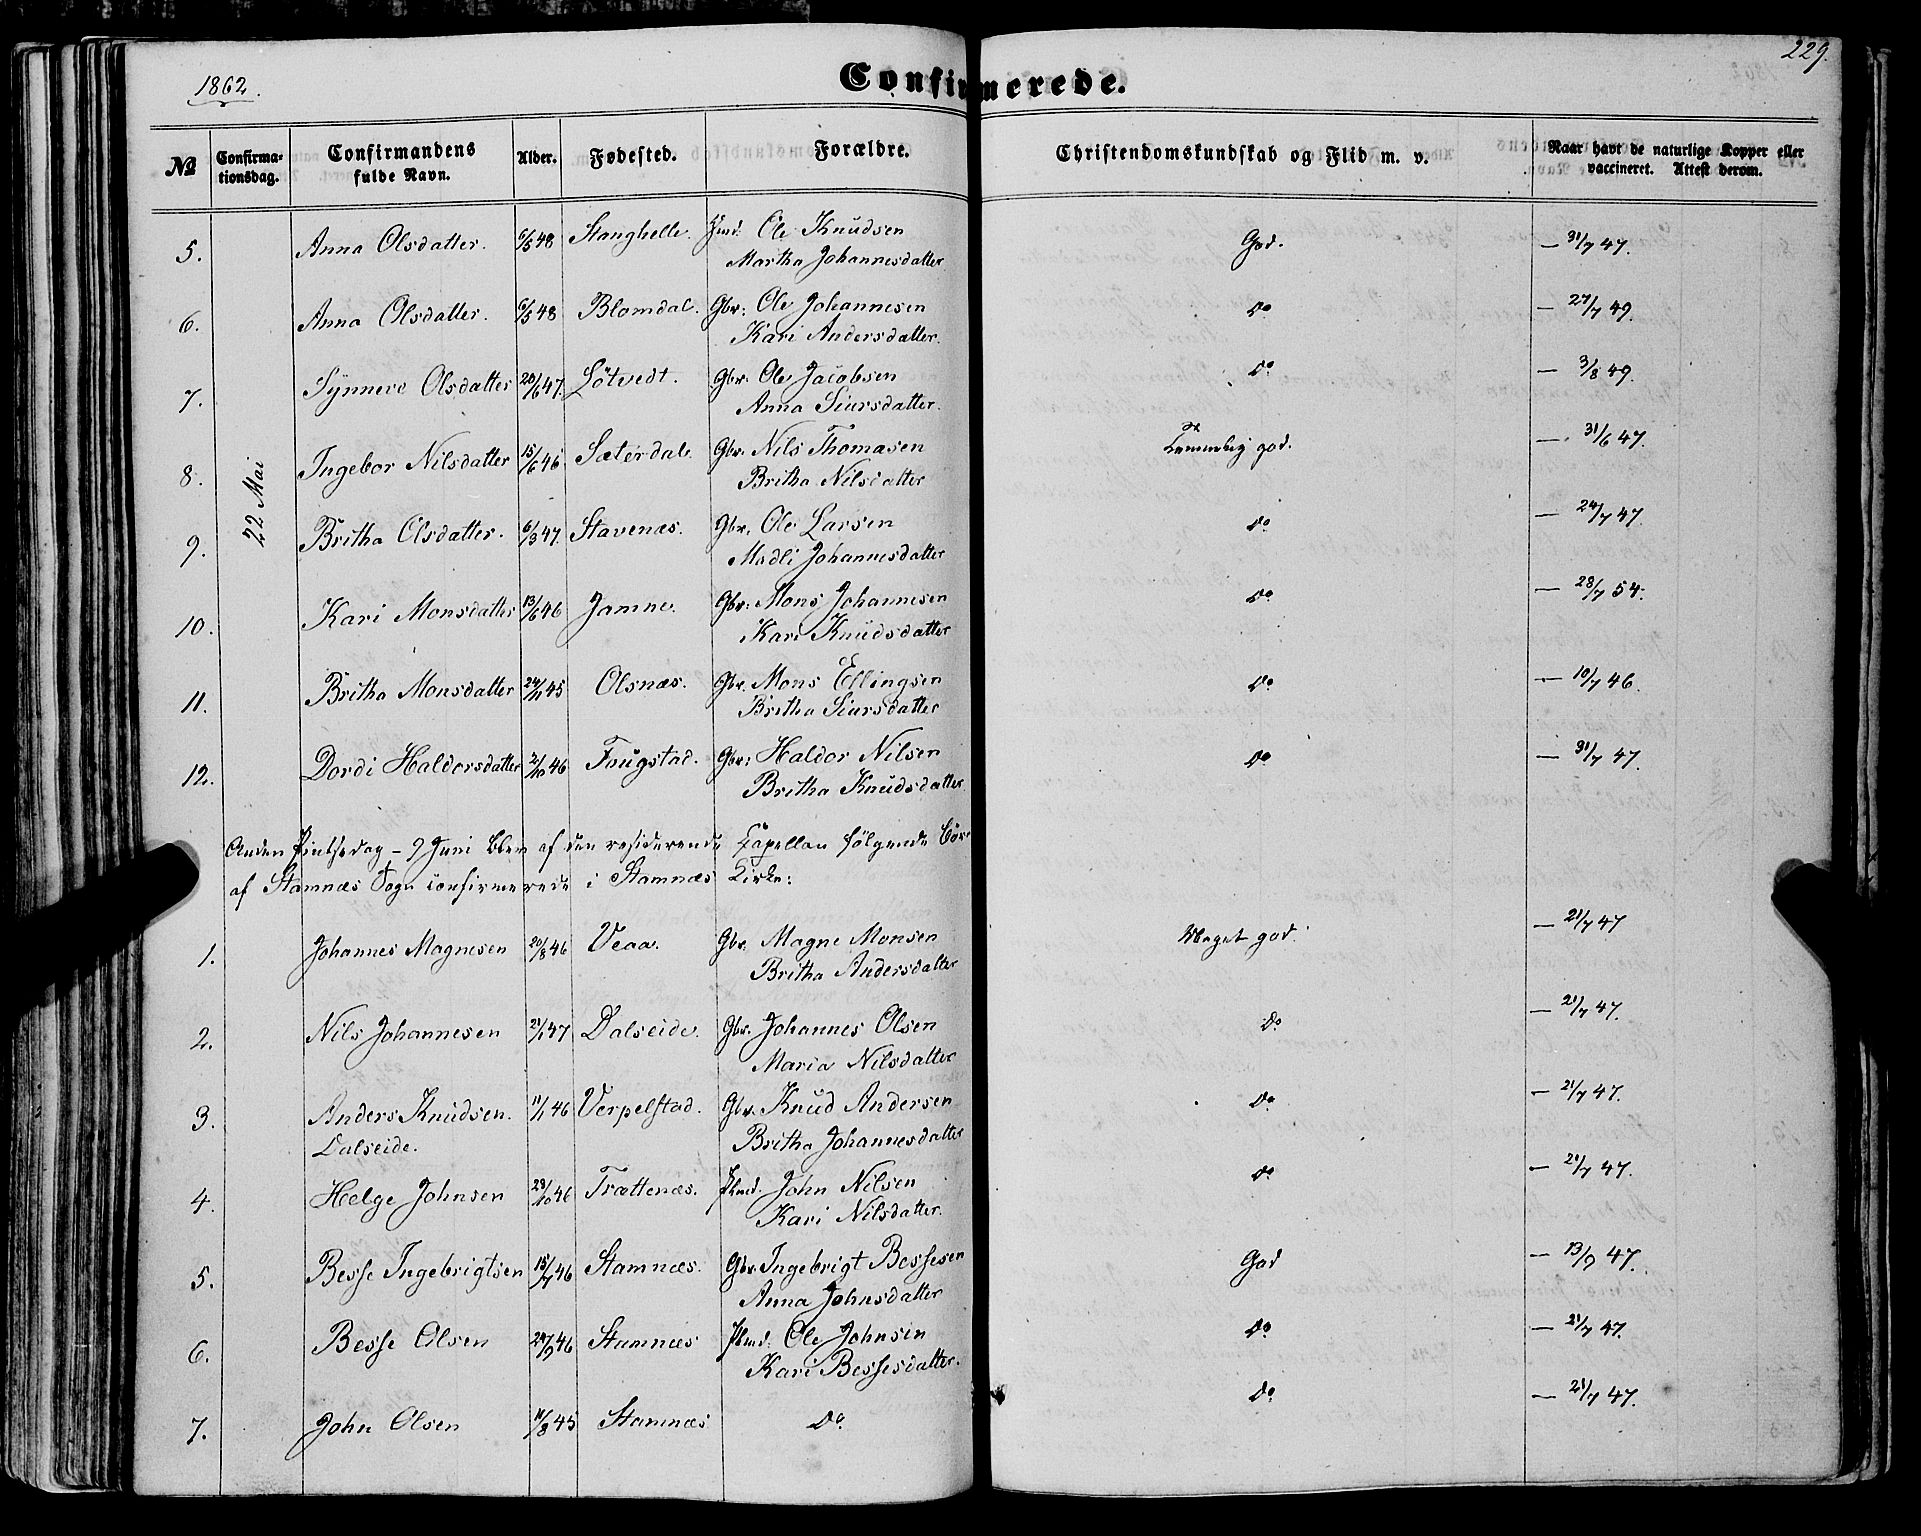 1862.
Confirmerede.
229.
No
Confirma-
tionsdag.
Confirmandens
fulde Navn.
Alder.
Fødested.
Forældre.
Christendomskundskab og Flid m. v.
Naar havt de naturlige Kopper eller
vaccineret. Attest derom.
22 Mai
5. Anna Olsdatter. 6/5 48 Stanghelle. Ole Knudsen God. — 31/7 47.
Martha Johannesdatter
6. Anna Olsdatter. 6/5 48 Blomdal. Gbr: Ole Johannesen Do — 27/7 49.
Kari Andersdatter.
7. Synneve Olsdatter 20/6 47. Lötvedt. Gbr. Ole Jacobsen Do — 3/8 49.
Anna Siursdatter.
8. Ingebor Nilsdatter 15/6 46 Sæterdal. Gbr. Nils Thomasen Temmelig god. — 31/6 47.
Britha Nilsdatter
9. Britha Olsdatter. 6/3 47. Stavenæs. Gbr. Ole Larsen Do — 24/7 47.
Madli Johannesdatter
10. Kari Monsdatter 13/6 46 Jamne. Gbr: Mons Johannesen Do — 28/7 54.
Kari Knudsdatter
11. Britha Monsdatter 24/11 45 Olsnæs. Gbr. Mons Ellingsen Do — 10/7 46.
Britha Siursdatter
12. Dordi Haldorsdatter 2/10 46 Fugstad. Gbr: Haldor Nilsen Do — 31/7 47.
Britha Knudsdatter
Anden Pintsedag – 9 Juni blev af den residerende Capellan følgende Börn
af Stamnæs Sogn confirmerede i Stamnæs Kirke:
1. Johannes Magnesen 20/8 46 Veaa. Gbr. Magne Monsen Meget god. — 21/7 47
Britha Andersdatter
2. Nils Johannesen 21/1 47 Dalseide. Gbr. Johannes Olsen Do — 21/7 47.
Maria Nilsdatter
3. Anders Knudsen. 11/1 46 Verpelstad. Gbr. Knud Andersen Do — 21/7 47.
Dalseide. Britha Johannesdatter
4. Helge Johnsen 28/10 46 Trættenæs. Plmd. John Nilsen Do — 21/7 47.
Kari Nilsdatter.
5. Besse Ingebrigtsen 15/7 46 Stamnæs. Gbr. Ingebrigt Bessesen God — 13/9 47.
Anna Johnsdatter
6. Besse Olsen 29/9 46 Stamnæs Plmd. Ole Johnsen Do — 21/7 47.
Kari Bessesdatter.
7. John Olsen 11/8 45 Stamnæs Do. Do — 21/7 47.